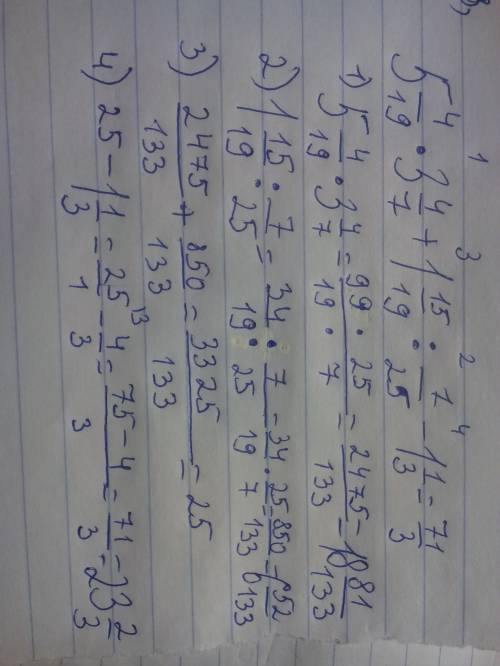 5 4/19 · 3 4/7 + 1 15/19 : 7/25 - 1 1/3 = 71/3
1) 5 4/19 · 3 4/7 = 99/19 · 25/7 = 2475/133 = 18 81/133
2) 1 15/19 : 7/25 = 34/19 : 7/25 = 34/19 · 25/7 = 850/133 = 6 52/133
3) 2475/133 + 850/133 = 3325/133 = 25
4) 25 - 1 1/3 = 25/1 - 4/3 = 75-4/3 = 71/3 = 23 2/3